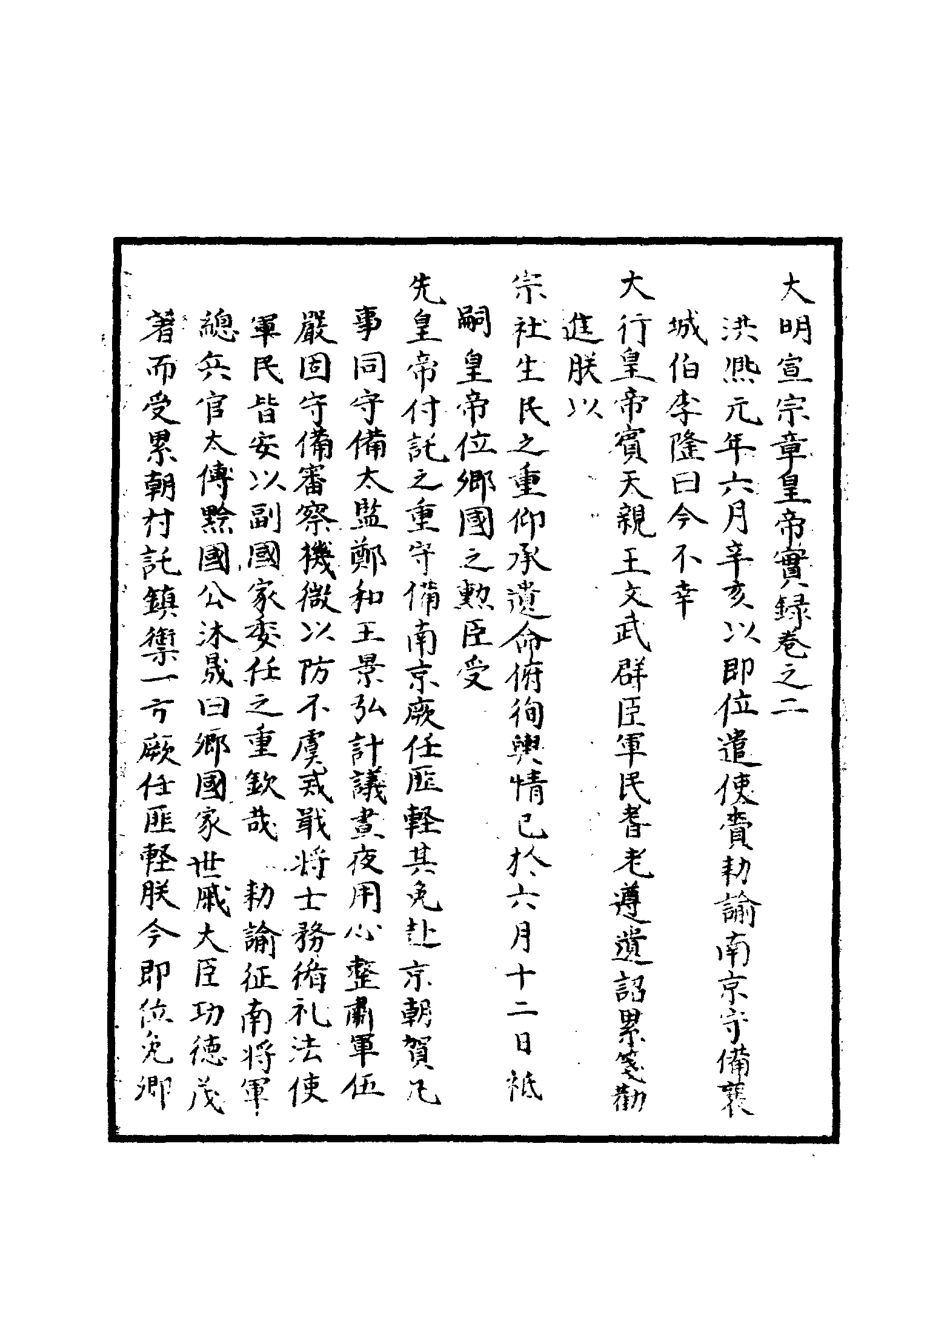 大明宣宗章皇帝實録卷之二
洪熈元年六月辛亥以即位遣使賫勑諭南京守備襄
城伯李隆曰今不幸
大行皇帝賓天親王文武群臣軍民耆老遵遺詔累箋勸
進朕以
宗社生民之重仰承遺命俯徇輿情已於六月十二日祗
嗣皇帝位卿國之勲臣受
先皇帝付託之重守備南京厥任匪軽其免赴京朝賀凡
事同守備太監鄭和王景弘計議晝夜用心整肅軍伍
嚴固守備審察機微以防不虞戒戢将士務循礼法使
軍民皆安以副國家委任之重欽哉 勑諭征南将軍
總兵官太傅黔國公沐晟曰卿國家世戚大臣功德茂
著而受累朝付託鎮禦一方厥任匪軽朕今即位免卿